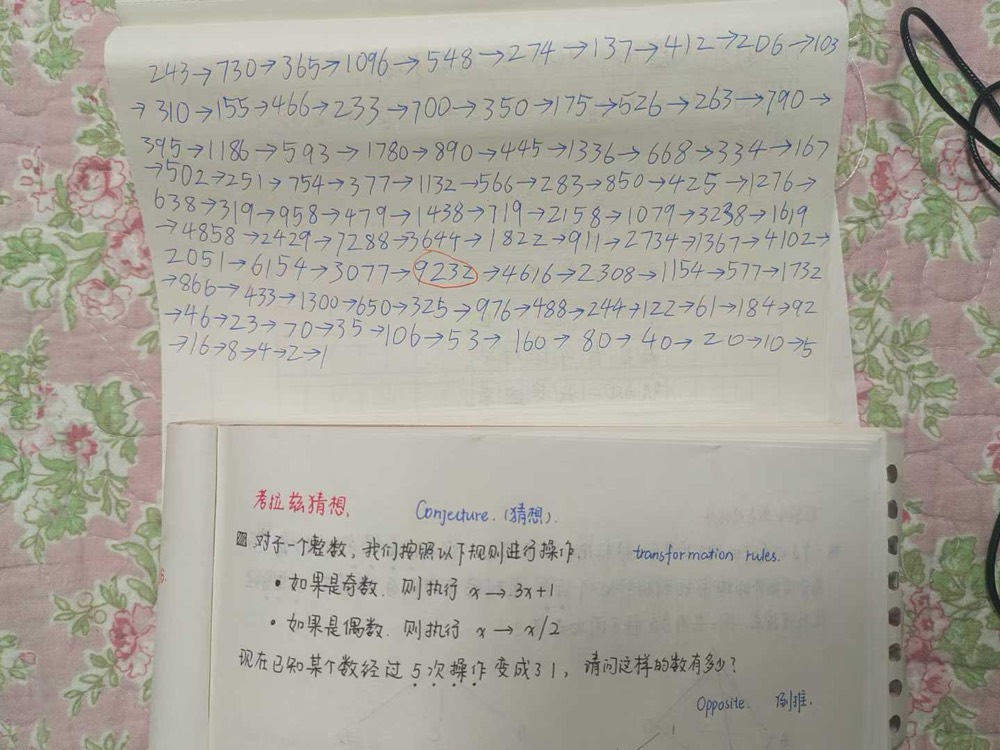 243→730→365→1096→548→274→137→412→206→103
→310→155→466→233→700→350→175→526→263→790→
395→1186→593→1780→890→445→1336→668→334→167
→502→251→754→377→1132→566→283→850→425→1276→
638→319→958→479→1438→719→2158→1079→3238→1619
→4858→2429→7288→3644→1822→911→2734→1367→4102→
2051→6154→3077→9232→4616→2308→1154→577→1732
→866→433→1300→650→325→976→488→244→122→61→184→92
→46→23→70→35→106→53→160→80→40→20→10→5
→16→8→4→2→1
考拉兹猜想. Conjecture. (猜想).
对于一个整数, 我们按照以下规则进行操作. transformation rules.
• 如果是奇数. 则执行 x→3x+1
• 如果是偶数. 则执行 x→x/2
现在已知某个数经过5次操作变成31, 请问这样的数有多少?
Opposite. 倒推.